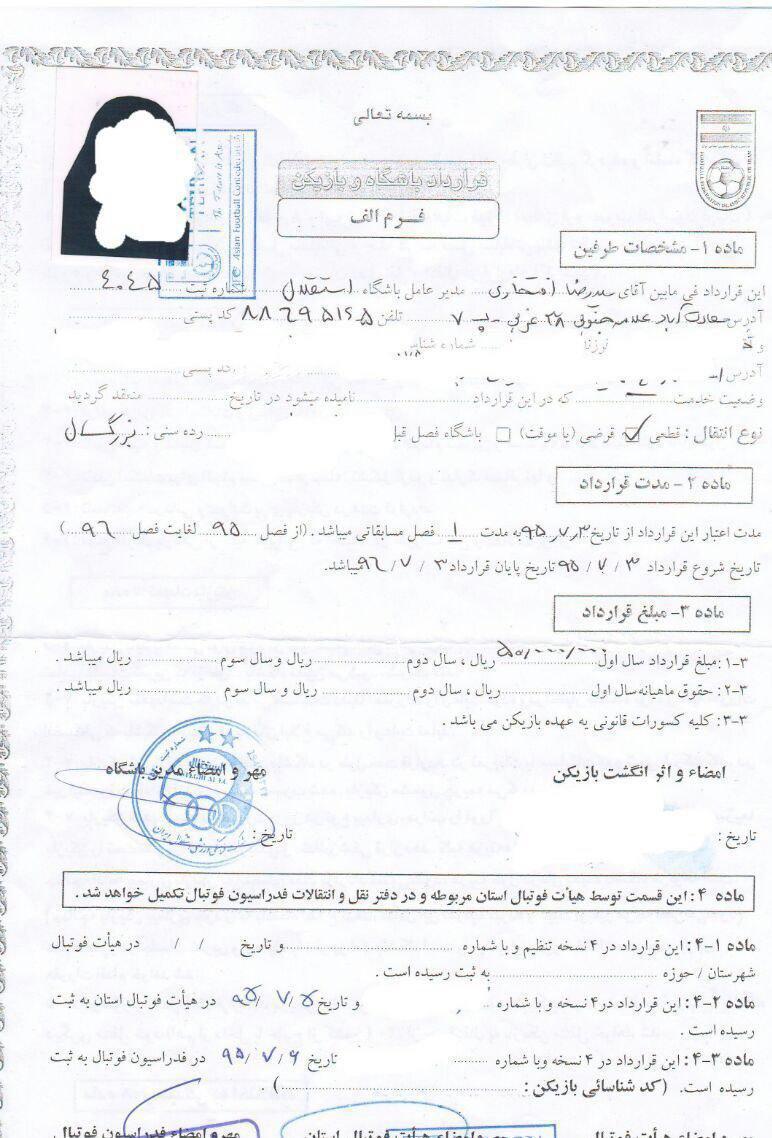 بسمه تعالی
قرارداد باشگاه و بازیکن
فـرم الف
Asian Football Confederation
ماده ۱- مشخصات طرفین
این قرارداد فی مابین آقای ... مدیر عامل باشگاه استقلال شماره ثبت ۴۰۴۵
آدرس سعادت آباد علامه جنوبی ۳۸ غربی پ ۷ تلفن ۸۸۶۹۵۱۶۵ کد پستی
شماره شناس
آدرس کد پستی
وضعیت خدمت که در این قرارداد نامیده میشود در تاریخ منعقد گردید
نوع انتقال : قطعی ☑ قرضی (یا موقت) □ باشگاه فصل قبل رده سنی : بزرگسال
ماده ۲- مدت قرارداد
مدت اعتبار این قرارداد از تاریخ ۹۵/۷/۳ به مدت ۱ فصل مسابقاتی میباشد . (از فصل ۹۵ لغایت فصل ۹۶ )
تاریخ شروع قرارداد ۹۵/۷/۳ تاریخ پایان قرارداد ۹۶/۷/۳ میباشد.
ماده ۳- مبلغ قرارداد
۳-۱: مبلغ قرارداد سال اول ۵۰/۰۰۰/۰۰۰ ریال ، سال دوم ریال و سال سوم ریال میباشد .
۳-۲: حقوق ماهیانه سال اول ریال ، سال دوم ریال و سال سوم ریال میباشد .
۳-۳: کلیه کسورات قانونی به عهده بازیکن می باشد .
امضاء و اثر انگشت بازیکن
مهر و امضاء مدیر باشگاه
تاریخ :
تاریخ :
ماده ۴ : این قسمت توسط هیأت فوتبال استان مربوطه و در دفتر نقل و انتقالات فدراسیون فوتبال تکمیل خواهد شد .
ماده ۴-۱ : این قرارداد در ۴ نسخه تنظیم و با شماره و تاریخ / / در هیأت فوتبال
شهرستان / حوزه به ثبت رسیده است .
ماده ۴-۲ : این قرارداد در۴ نسخه و با شماره و تاریخ ۹۵/۷/۵ در هیأت فوتبال استان به ثبت
رسیده است .
ماده ۴-۳ : این قرارداد در ۴ نسخه وبا شماره تاریخ ۹۵/۷/۶ در فدراسیون فوتبال به ثبت
رسیده است. (کد شناسائی بازیکن : )
مهر و امضاء هیأت فوتبال مهر و امضاء هیأت فوتبال استان مهر و امضاء فدراسیون فوتبال